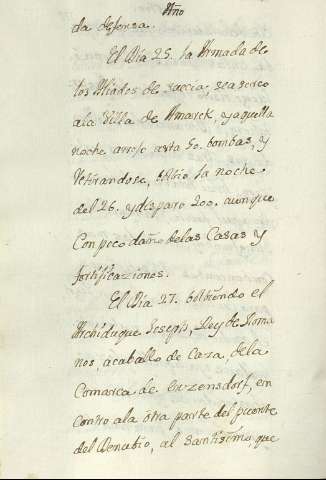 Año
da defensa.
El Dia 25. la Armada de
los Aliados de Suecia, se acerco
ala Villa de Amarck, y aquella
noche arrojo 50. bombas, y
retirandose, bolbio la noche
del 26. y disparo 200. aunque
Con poco daño de las Casas y
fortificaziones.
El Dia 27. bolbiendo el
Archiduque Joseph, Rey de Roma
nos, acaballo de Caza, de la
Comarca de Enzensdorf, en
contro ala otra parte del puente
del Danubio, al Santisimo, que